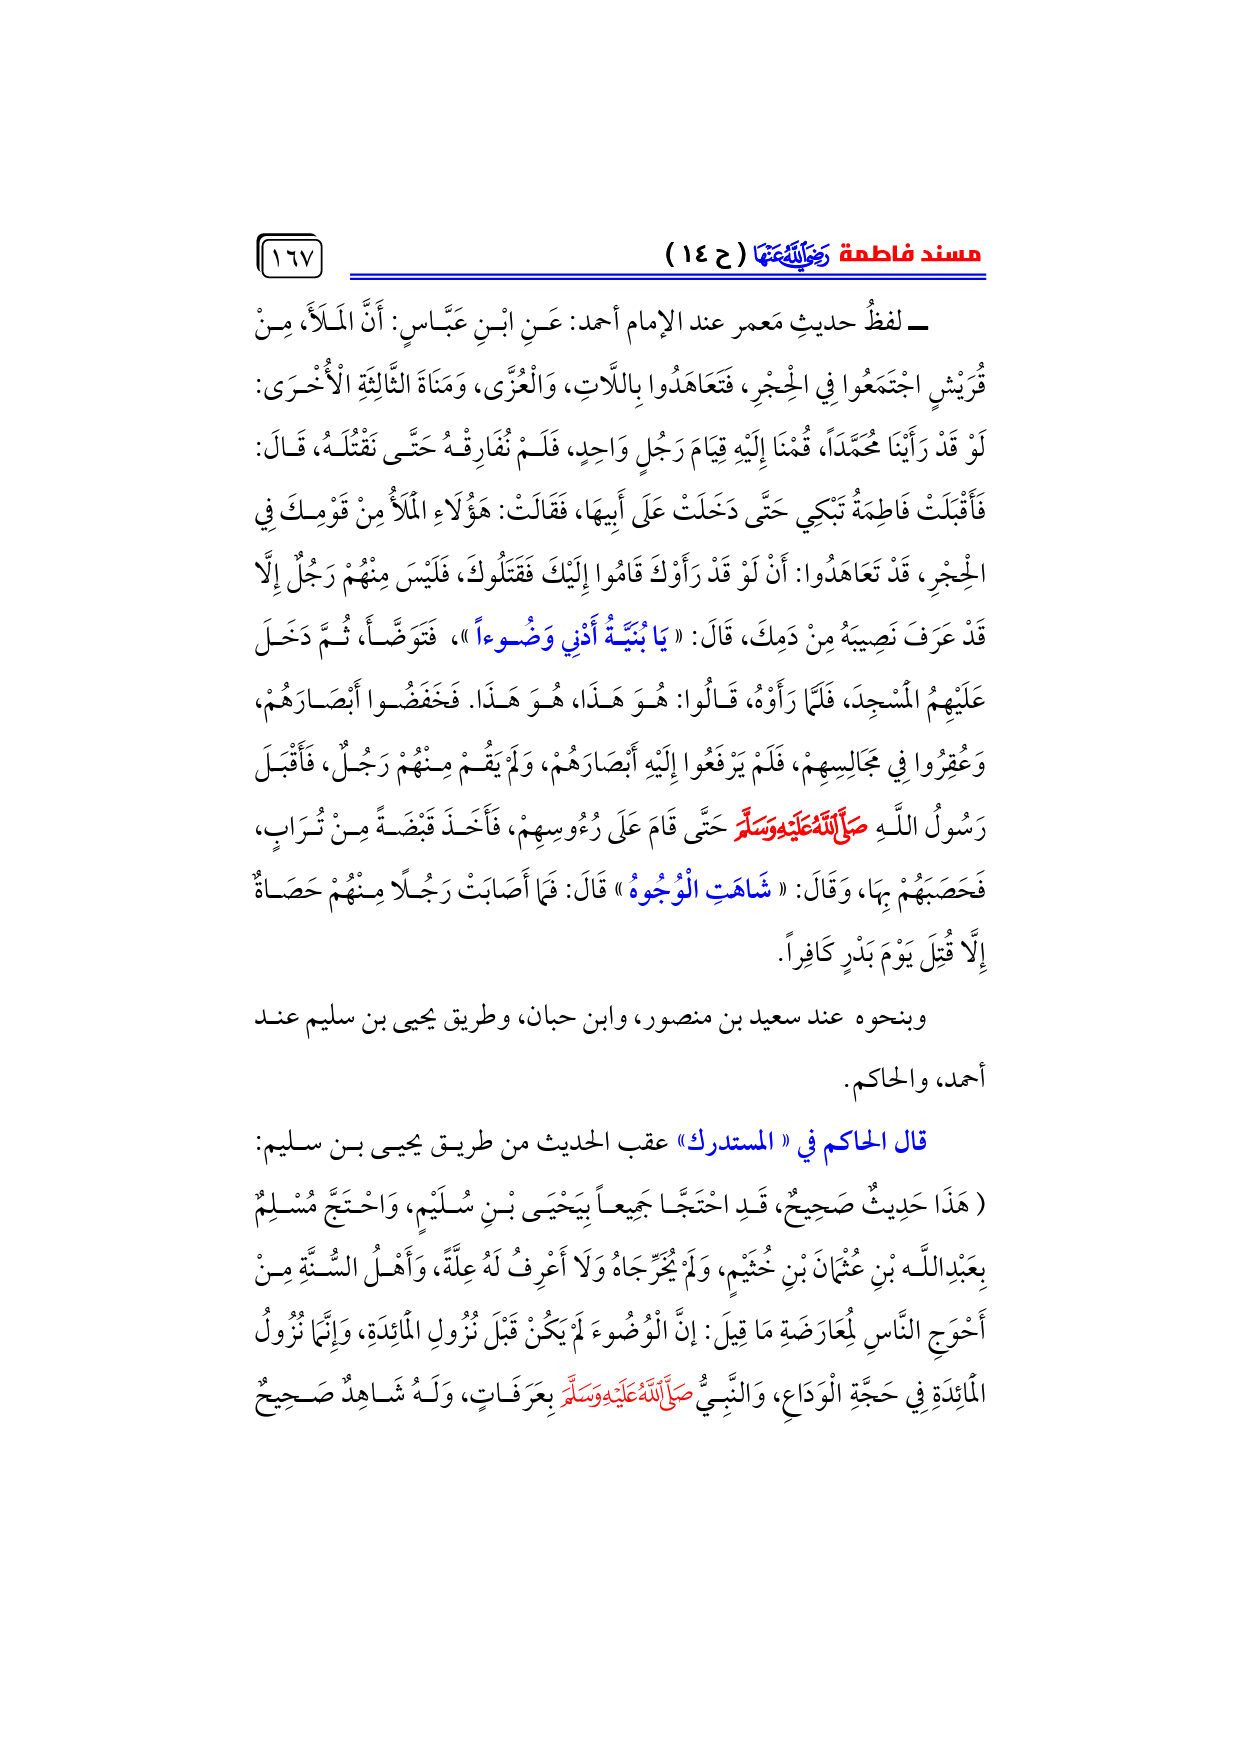 مسند فاطمة رَضِيَ اللَّهُ عَنْهَا ( ح ١٤ )
١٦٧
ـ لفظُ حديثِ مَعمر عند الإمام أحمد: عَنِ ابْنِ عَبَّاسٍ: أَنَّ المَلَأَ، مِنْ
قُرَيْشٍ اجْتَمَعُوا فِي الْحِجْرِ، فَتَعَاهَدُوا بِاللَّاتِ، وَالْعُزَّى، وَمَنَاةَ الثَّالِثَةِ الْأُخْرَى:
لَوْ قَدْ رَأَيْنَا مُحَمَّدَاً، قُمْنَا إِلَيْهِ قِيَامَ رَجُلٍ وَاحِدٍ، فَلَمْ نُفَارِقْهُ حَتَّى نَقْتُلَهُ، قَالَ:
فَأَقْبَلَتْ فَاطِمَةُ تَبْكِي حَتَّى دَخَلَتْ عَلَى أَبِيهَا، فَقَالَتْ: هَؤُلَاءِ الْمَلَأُ مِنْ قَوْمِكَ فِي
الْحِجْرِ، قَدْ تَعَاهَدُوا: أَنْ لَوْ قَدْ رَأَوْكَ قَامُوا إِلَيْكَ فَقَتَلُوكَ، فَلَيْسَ مِنْهُمْ رَجُلٌ إِلَّا
قَدْ عَرَفَ نَصِيبَهُ مِنْ دَمِكَ، قَالَ: « يَا بُنَيَّةُ أَدْنِي وَضُوءاً »، فَتَوَضَّأَ، ثُمَّ دَخَلَ
عَلَيْهِمُ الْمَسْجِدَ، فَلَمَّا رَأَوْهُ، قَالُوا: هُوَ هَذَا، هُوَ هَذَا. فَخَفَضُوا أَبْصَارَهُمْ،
وَعُقِرُوا فِي مَجَالِسِهِمْ، فَلَمْ يَرْفَعُوا إِلَيْهِ أَبْصَارَهُمْ، وَلَمْ يَقُمْ مِنْهُمْ رَجُلٌ، فَأَقْبَلَ
رَسُولُ اللَّهِ صَلَّى اللَّهُ عَلَيْهِ وَسَلَّمَ حَتَّى قَامَ عَلَى رُءُوسِهِمْ، فَأَخَذَ قَبْضَةً مِنْ تُرَابٍ،
فَحَصَبَهُمْ بِهَا، وَقَالَ: « شَاهَتِ الْوُجُوهُ » قَالَ: فَمَا أَصَابَتْ رَجُلًا مِنْهُمْ حَصَاةٌ
إِلَّا قُتِلَ يَوْمَ بَدْرٍ كَافِراً.
وبنحوه عند سعيد بن منصور، وابن حبان، وطريق يحيى بن سليم عند
أحمد، والحاكم.
قال الحاكم في « المستدرك» عقب الحديث من طريق يحيى بن سليم:
( هَذَا حَدِيثٌ صَحِيحٌ، قَدِ احْتَجَّا جَمِيعاً بِيَحْيَى بْنِ سُلَيْمٍ، وَاحْتَجَّ مُسْلِمٌ
بِعَبْدِاللَّه بْنِ عُثْمَانَ بْنِ خُثَيْمٍ، وَلَمْ يُخَرِّجَاهُ وَلَا أَعْرِفُ لَهُ عِلَّةً، وَأَهْلُ السُّنَّةِ مِنْ
أَحْوَجِ النَّاسِ لِمُعَارَضَةِ مَا قِيلَ: إنَّ الْوُضُوءَ لَمْ يَكُنْ قَبْلَ نُزُولِ الْمَائِدَةِ، وَإِنَّمَا نُزُولُ
الْمَائِدَةِ فِي حَجَّةِ الْوَدَاعِ، وَالنَّبِيُّ صَلَّى اللَّهُ عَلَيْهِ وَسَلَّمَ بِعَرَفَاتٍ، وَلَهُ شَاهِدٌ صَحِيحٌ